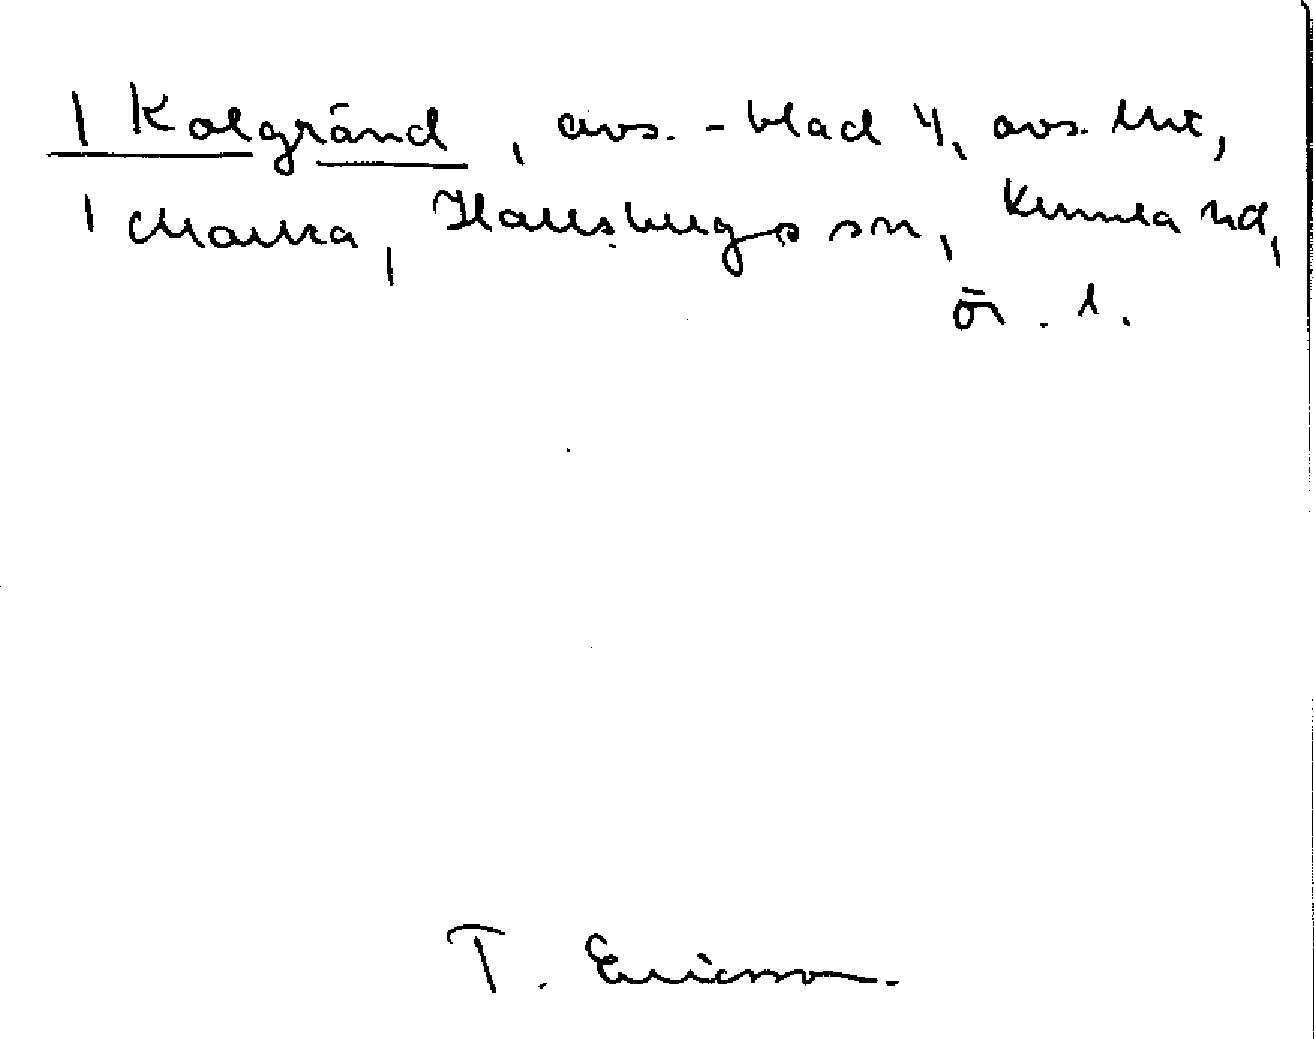 1 Kolgränd, avs. - blad 4, avs.
1 Marka, Hallsbergs sn, Kumla hd,
ör. l.
T. Ericsson.